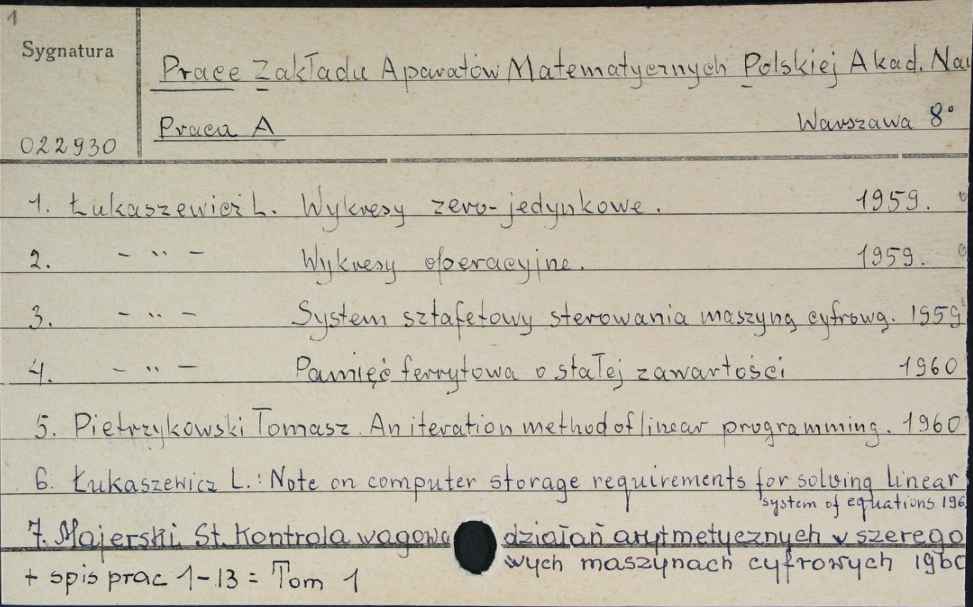 1
Sygnatura
Prace Zakładu Aparatów Matematycznych Polskiej Akad. Nau
Praca A Warszawa 8°
022930
1. Łukaszewicz L. Wykresy zero-jedynkowe. 1959.
2. - " - Wykresy operacyjne. 1959.
3. - " - System sztafetowy sterowania maszyną cyfrową. 1959
4. - " - Pamięć ferrytowa o stałej zawartości 1960
5. Pietrzykowski Tomasz. An iteration method of linear programming. 1960
6. Łukaszewicz L.: Note on computer storage requirements for solving linear
system of equations 196
7. Majerski St. Kontrola wagowa działań arytmetycznych w szerego
wych maszynach cyfrowych 1960
+ spis prac 1-13 = Tom 1